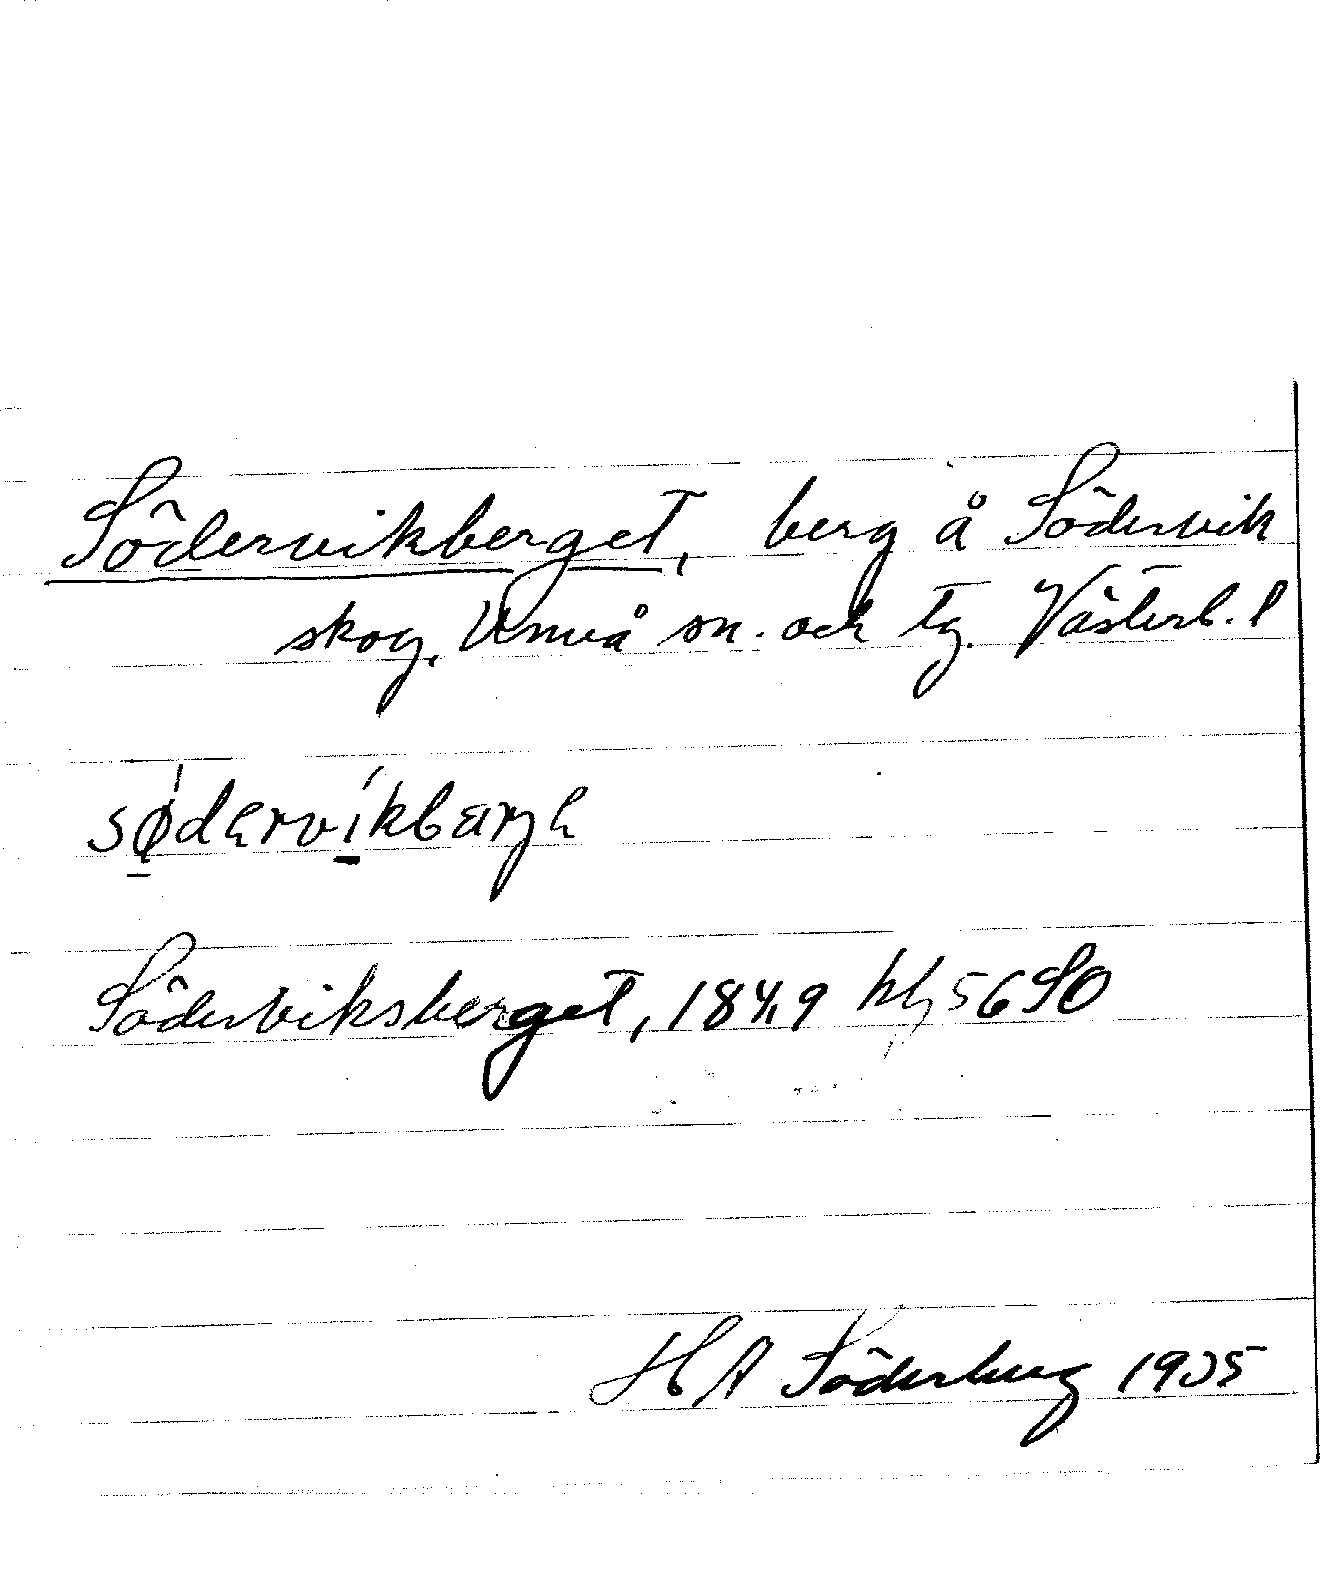 Södervikberget, berg å Södervik
skog, Umeå sn. och tg. Västerb. l
södərvikbärjə
Söderviksberget, 184,9 kbl 56 SO
H A Söderberg 1935